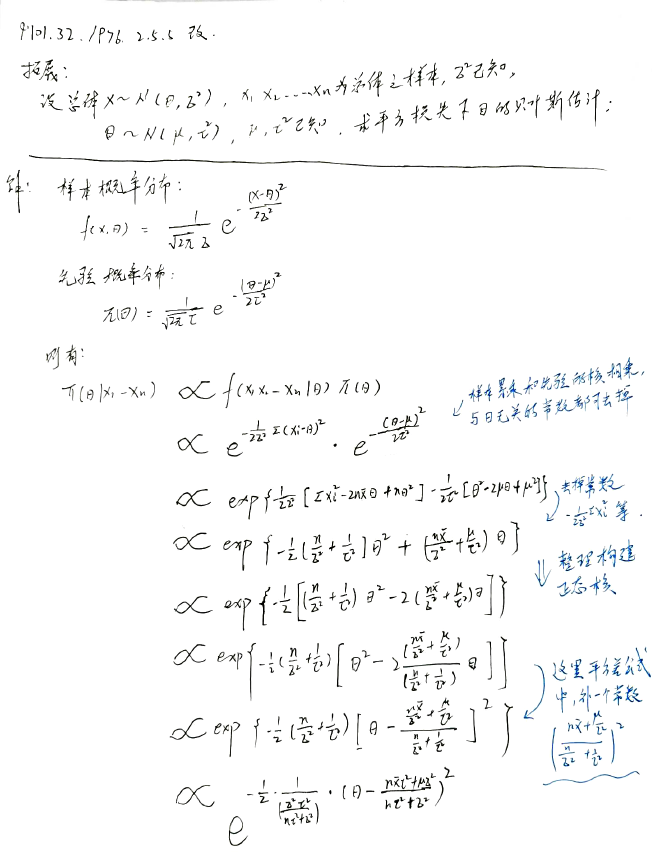 P101.32. /P76. 2.5.5 改.
拓展:
设总体 X ~ N(θ, σ²), X₁ X₂ ...... Xn 为总体之样本, σ²已知,
θ ~ N(μ, τ²), μ, τ²已知. 求平方损失下θ的贝叶斯估计:
解: 样本概率分布:
f(x,θ) = 1/(√2π σ) e^{-(x-θ)²/2σ²}
先验概率分布:
π(θ) = 1/(√2π τ) e^{-(θ-μ)²/2τ²}
则有:
π(θ|x₁-xn) ∝ f(x₁x₂-xn|θ) π(θ)
样本累乘和先验的核相乘,
与θ无关的常数都可去掉
∝ e^{-1/2σ² Σ(xi-θ)²} · e^{-(θ-μ)²/2τ²}
∝ exp{-1/2σ² [Σxi²-2nx̄θ+nθ²] - 1/2τ² [θ²-2μθ+μ²]}
去掉常数
-1/2σ² Σxi² 等.
∝ exp{-1/2(n/σ² + 1/τ²]θ² + (nx̄/σ² + μ/τ²)θ}
整理构建
正态核
∝ exp{-1/2[(n/σ² + 1/τ²)θ² - 2(nx̄/σ² + μ/τ²)θ]}
∝ exp{-1/2(n/σ² + 1/τ²)[θ² - 2 (nx̄/σ² + μ/τ²)/(n/σ² + 1/τ²) θ]}
这里平方差公式
中,补一个常数
((nx̄/σ² + μ/τ²)/(n/σ² + 1/τ²))²
∝ exp{-1/2(n/σ² + 1/τ²)[θ - (nx̄/σ² + μ/τ²)/(n/σ² + 1/τ²)]²}
∝ e^{-1/2 · 1/(σ²τ²/(nτ²+σ²)) · (θ - (nx̄τ²+μσ²)/(nτ²+σ²))²}